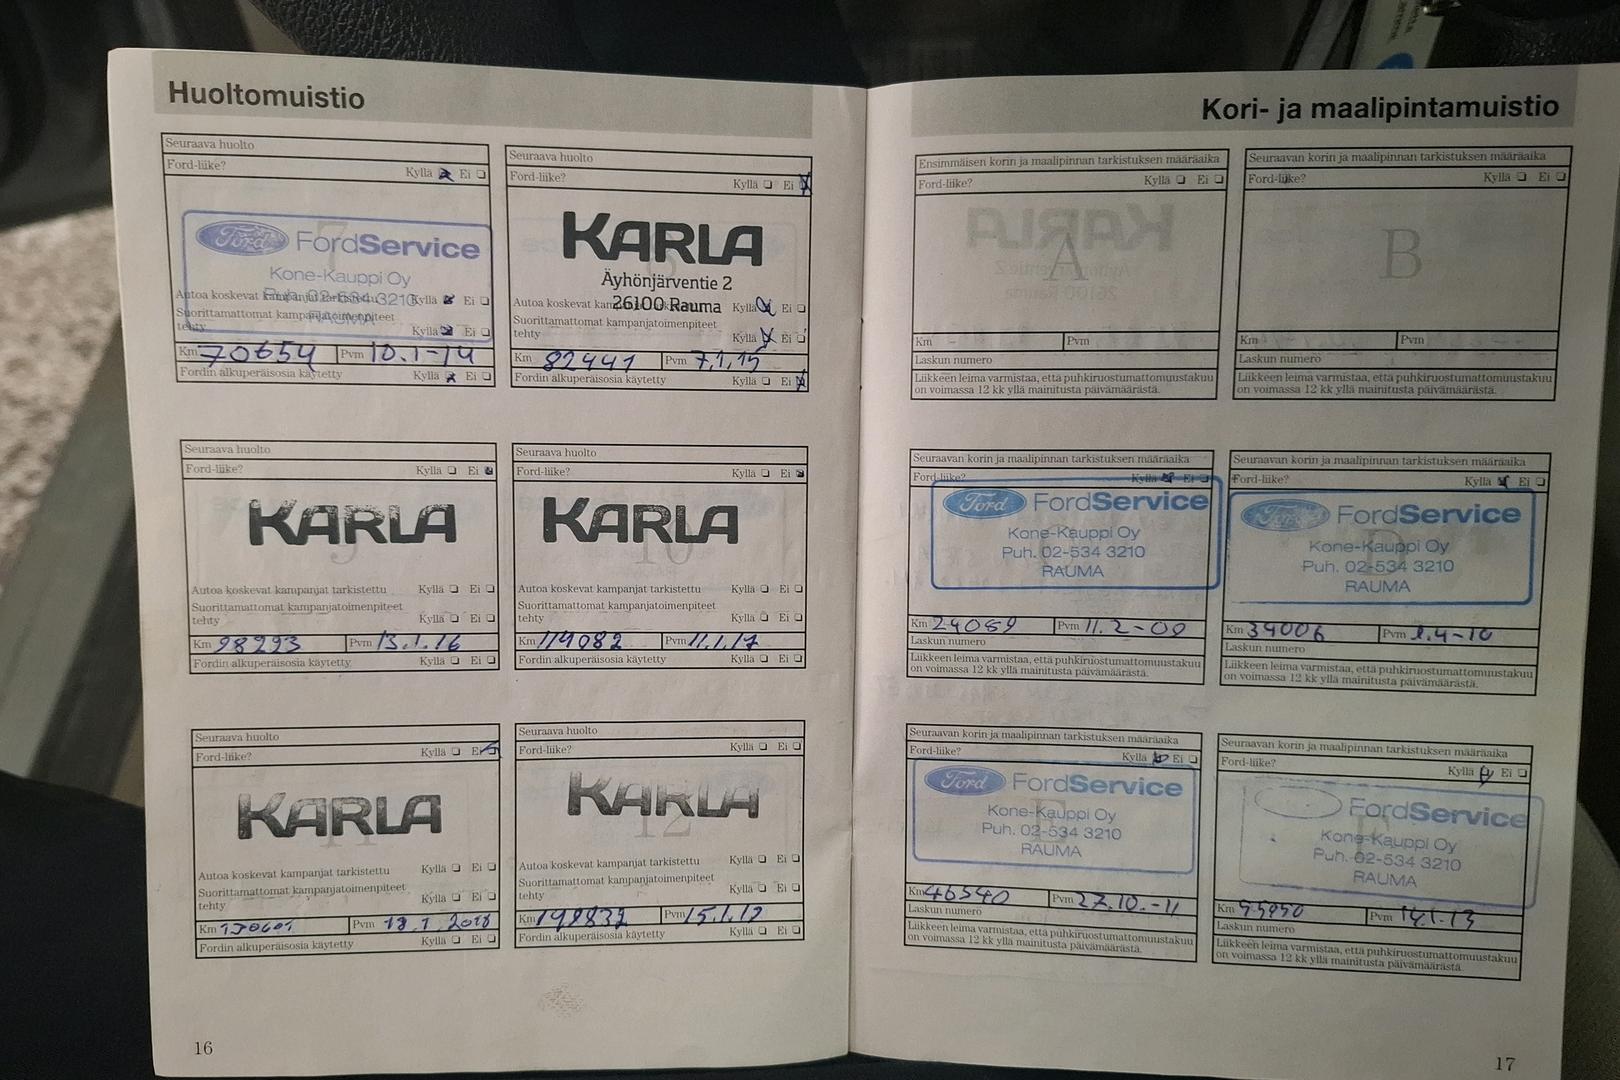 Huoltomuistio
Seuraava huolto
Ford-liike? Kyllä Ei
7
Ford FordService
Kone-Kauppi Oy
Puh. 02-534 3210
RAUMA
Autoa koskevat kampanjat tarkistettu Kyllä Ei
Suorittamattomat kampanjatoimenpiteet
tehty Kyllä Ei
Km 70654 Pvm 10.1-14
Fordin alkuperäisosia käytetty Kyllä Ei
Seuraava huolto
Ford-liike? Kyllä Ei
KARLA
Äyhönjärventie 2
26100 Rauma
Autoa koskevat kampanjat tarkistettu Kyllä Ei
Suorittamattomat kampanjatoimenpiteet
tehty Kyllä Ei
Km 82441 Pvm 7.1.15
Fordin alkuperäisosia käytetty Kyllä Ei
Seuraava huolto
Ford-liike? Kyllä Ei
KARLA
9
Autoa koskevat kampanjat tarkistettu Kyllä Ei
Suorittamattomat kampanjatoimenpiteet
tehty Kyllä Ei
Km 98293 Pvm 13.1.16
Fordin alkuperäisosia käytetty Kyllä Ei
Seuraava huolto
Ford-liike? Kyllä Ei
KARLA
10
Autoa koskevat kampanjat tarkistettu Kyllä Ei
Suorittamattomat kampanjatoimenpiteet
tehty Kyllä Ei
Km 114082 Pvm 11.1.17
Fordin alkuperäisosia käytetty Kyllä Ei
Seuraava huolto
Ford-liike? Kyllä Ei
KARLA
11
Autoa koskevat kampanjat tarkistettu Kyllä Ei
Suorittamattomat kampanjatoimenpiteet
tehty Kyllä Ei
Km Pvm 18.1.2018
Fordin alkuperäisosia käytetty Kyllä Ei
Seuraava huolto
Ford-liike? Kyllä Ei
KARLA
12
Autoa koskevat kampanjat tarkistettu Kyllä Ei
Suorittamattomat kampanjatoimenpiteet
tehty Kyllä Ei
Km Pvm
Fordin alkuperäisosia käytetty Kyllä Ei
16
Kori- ja maalipintamuistio
Ensimmäisen korin ja maalipinnan tarkistuksen määräaika
Ford-liike? Kyllä Ei
A
Km Pvm
Laskun numero
Liikkeen leima varmistaa, että puhkiruostumattomuustakuu
on voimassa 12 kk yllä mainitusta päivämäärästä.
Seuraavan korin ja maalipinnan tarkistuksen määräaika
Ford-liike? Kyllä Ei
B
Km Pvm
Laskun numero
Liikkeen leima varmistaa, että puhkiruostumattomuustakuu
on voimassa 12 kk yllä mainitusta päivämäärästä.
Seuraavan korin ja maalipinnan tarkistuksen määräaika
Ford-liike? Kyllä Ei
Ford FordService
Kone-Kauppi Oy
Puh. 02-534 3210
RAUMA
Km 24089 Pvm 11.2-09
Laskun numero
Liikkeen leima varmistaa, että puhkiruostumattomuustakuu
on voimassa 12 kk yllä mainitusta päivämäärästä.
Seuraavan korin ja maalipinnan tarkistuksen määräaika
Ford-liike? Kyllä Ei
Ford FordService
D
Kone-Kauppi Oy
Puh. 02-534 3210
RAUMA
Km 34006 Pvm
Laskun numero
Liikkeen leima varmistaa, että puhkiruostumattomuustakuu
on voimassa 12 kk yllä mainitusta päivämäärästä.
Seuraavan korin ja maalipinnan tarkistuksen määräaika
Ford-liike? Kyllä Ei
Ford FordService
Kone-Kauppi Oy
E
Puh. 02-534 3210
RAUMA
Km 46540 Pvm 27.10.-11
Laskun numero
Liikkeen leima varmistaa, että puhkiruostumattomuustakuu
on voimassa 12 kk yllä mainitusta päivämäärästä.
Seuraavan korin ja maalipinnan tarkistuksen määräaika
Ford-liike? Kyllä Ei
FordService
Kone-Kauppi Oy
F
Puh. 02-534 3210
RAUMA
Km Pvm
Laskun numero
Liikkeen leima varmistaa, että puhkiruostumattomuustakuu
on voimassa 12 kk yllä mainitusta päivämäärästä.
17